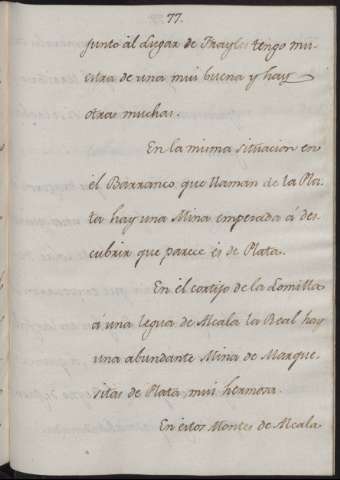 77.
junto ál Lugar de Frayles tengo mu-
estra de una mui buena y hay
otras muchas.
En la misma situacion en
él Barranco que llaman de la Pla-
ta hay una Mina empezada á des-
cubrir que parece és de Plata.
En él cortijo de la Lomilla
á una legua de Alcala la Real hay
una abundante Mina de Marque-
sitas de Plata mui hermosa.
En estos Montes de Alcala